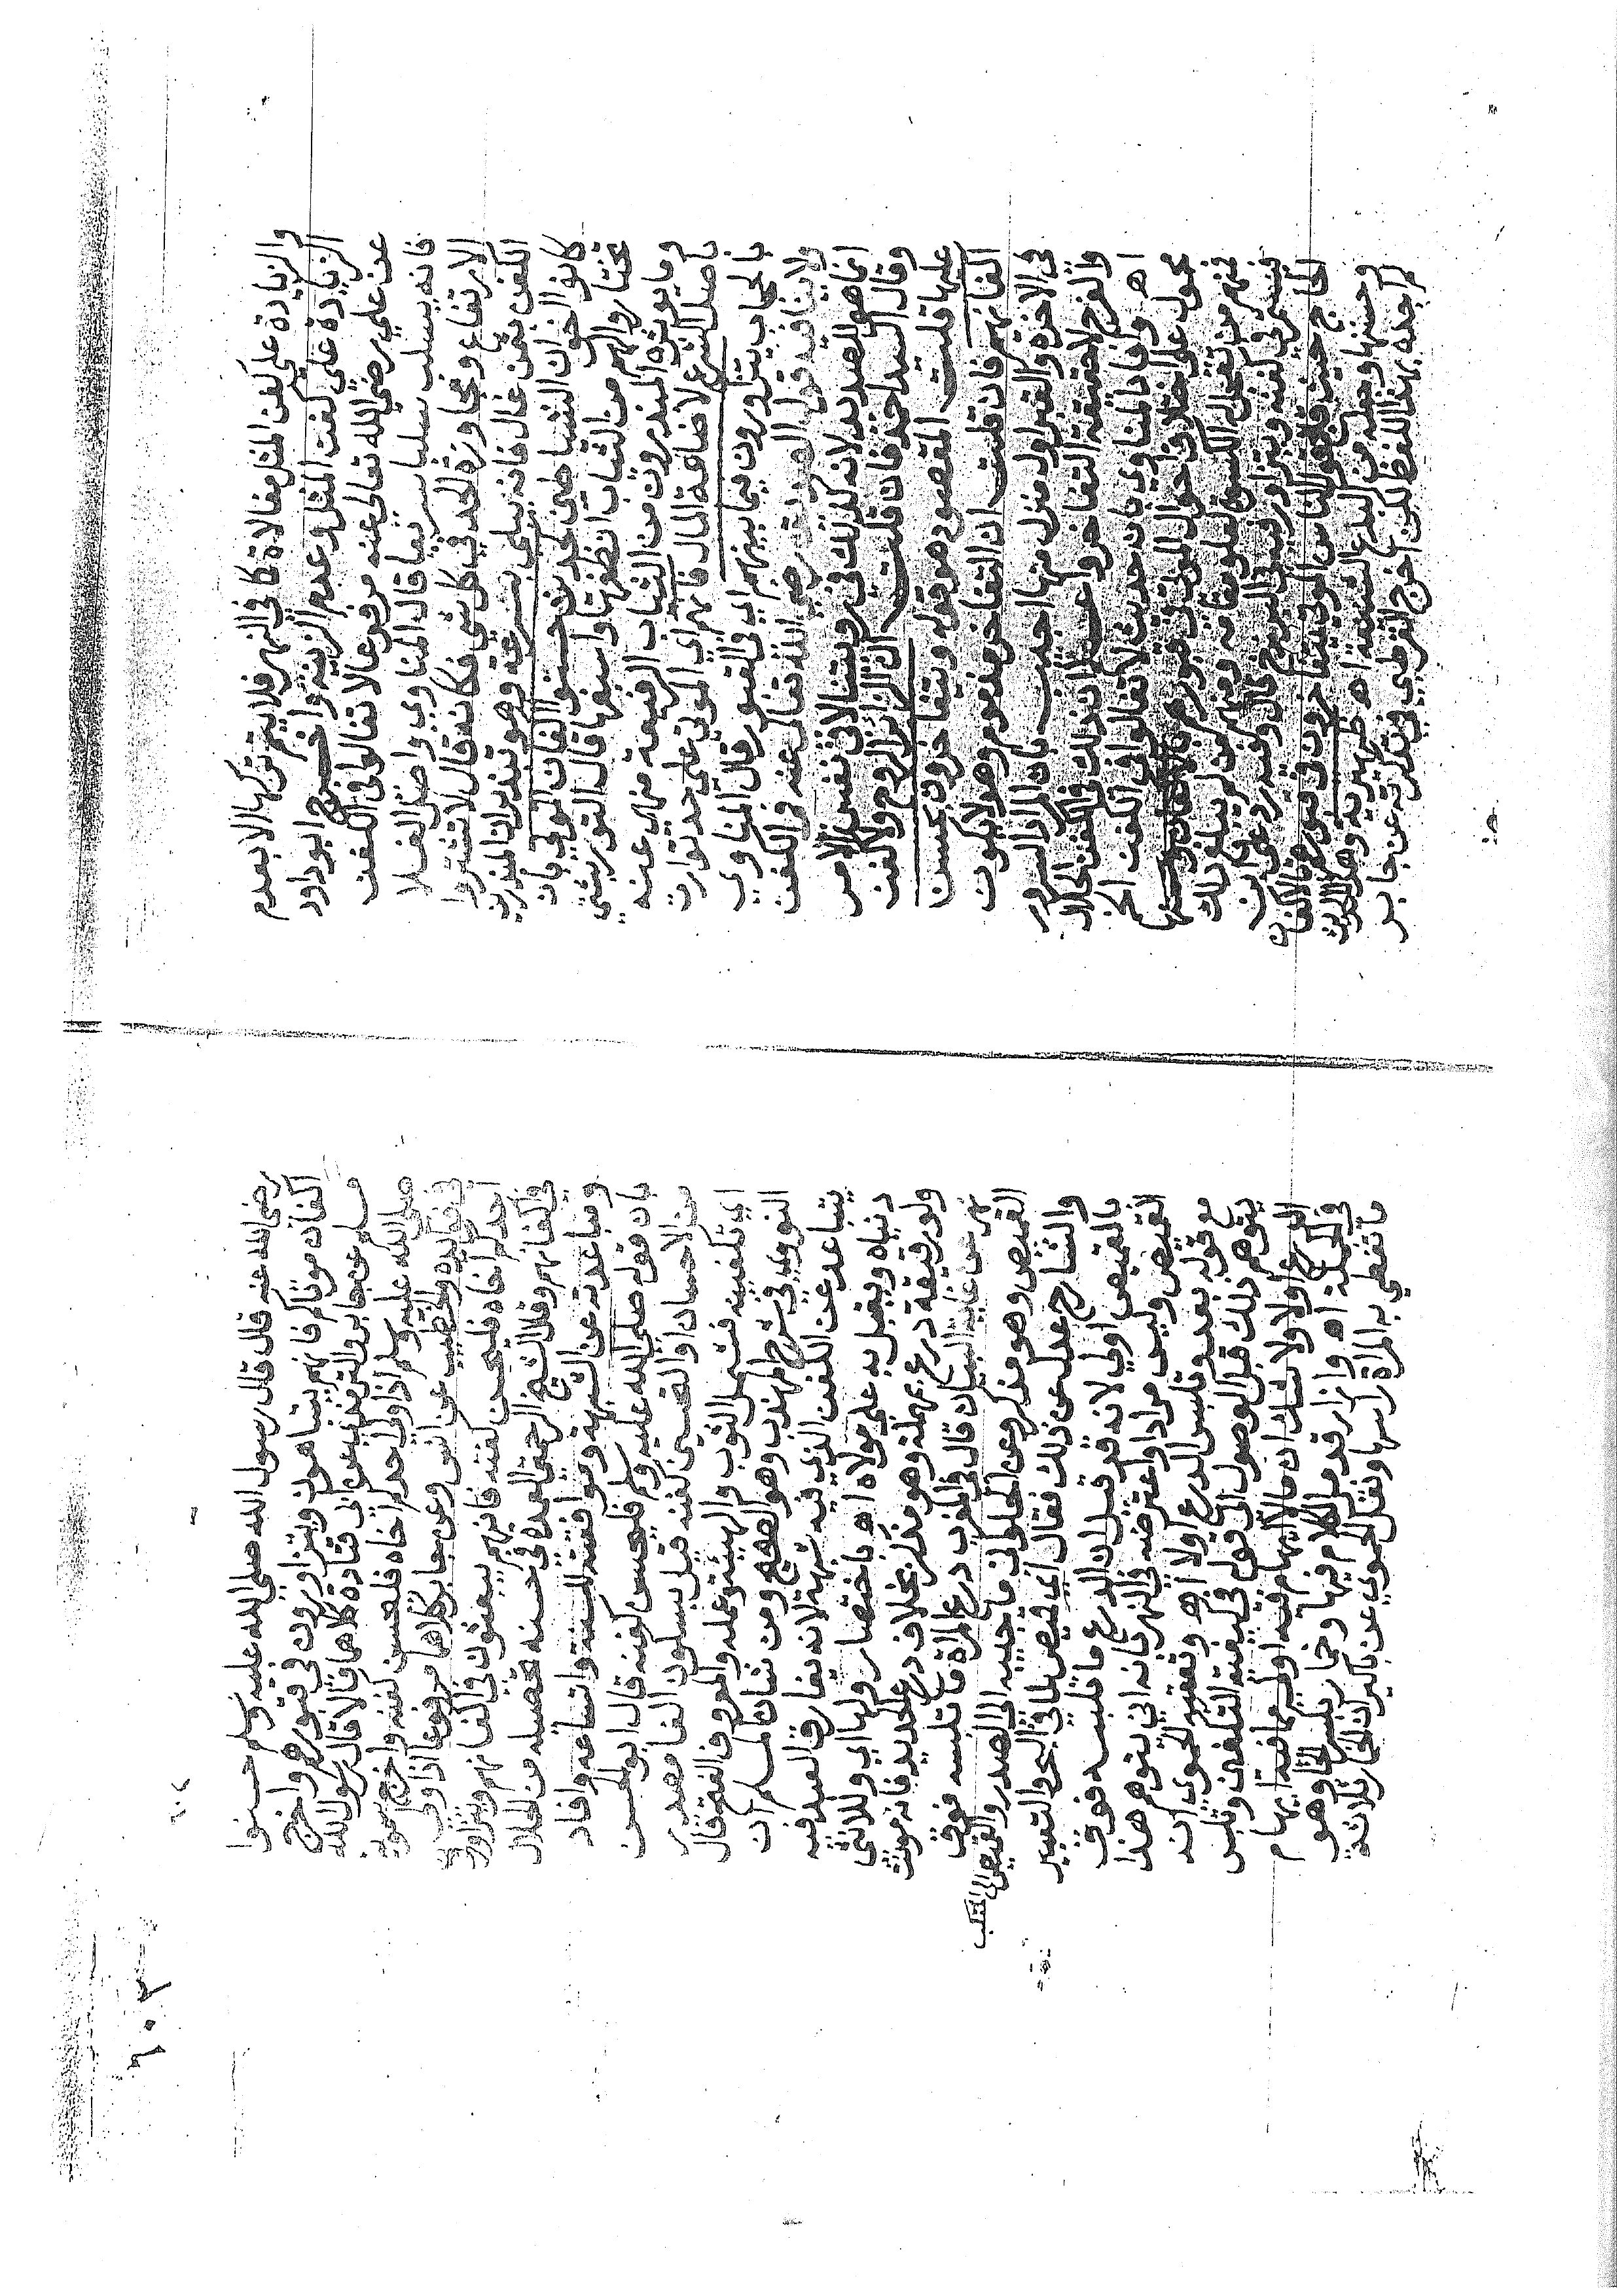 والزيادة علي كفن المثل مغالاة كما في النهر فلا يتم تركها الا بعدم
الزيادة علي كفن المثل وعدم الزينة واخرج ابوداود
عن علي رضي الله تعالي عنه مرفوعا لا تغالوا في الكفن
فانه يسلب سلبا سريعا قال المناوي واصل الغلا
الارتفاع ومجاوزة الحد في كل شي فكانه قال لا تشتروا
الكفن بثمن غال فانه يبلي بسرعة وهو تبذير ان المبذرين
كانوا اخوان الشياطين حسنوا اكفان الموتي بان
يختاروا لهم من الثياب انظفها واسبغها قال التوربشتي
وما يوثره المبذرون من الثياب الرفيعة منهي عنه
باصل الشرع لاضاعة المال فانهم اي الموتي علي حد توارت
بالحجاب يتزاورون فيما بينهم اي في القبور قال المناوي
ولا ينافيه قول الصديق رضي الله تعالي عنه في الكفن
انما هو للصديد لانه كذلك في رويتنا لا في نفس الامر
وقال السيد احمد فان قلت ان الزائر الروح ولا كفن
عليها قلت المقصود هو قوله ويتفاخرون بحسن
اكفانهم فان قلت ان التفاخر مذموم وهو لا يكون
في الاخرة والقبر اول منزل منها اجيب بان المراد السرور
والفرح لا حقيقة التفاخر واعلم ان ذلك في الكفن الحلال
اه وافاد المناوي بان حديث لا تغالوا في الكفن الخ
محمول علي اختلاف احوال الموتي في قبورهم
فمنهم من تعجل له الكسوة لعلو مقامه ومنهم من لم يبلغ ذاك
فيستمر في كفنه ويتزاور فيه في البرزخ قال وفيه رد علي ابن
الحاج حيث قال قول الناس الموتي يتفاخرون في قبورهم بالاكفان
وحسنها وجعله من البدع الشنيعة اه ظهيرية وهذا الحديث
لم اجده بهذا اللفظ لكن اخرج القرطبي في تذكرته عن جابر
رضي الله عنه قال قال رسول الله صلي الله عليه وسلم حسنوا
اكفان موتاكم فانهم يتباهون ويتزاورون في قبورهم واخرج
مسلم عن جابر والترمذي عن ابي قتادة كلاهما قالا قال رسول الله
صلي الله عليه وسلم اذا ولي احدكم اخاه فليحسن كفنه واخرج سمويه
والعقيلي والخطيب عن انس وعن جابر كلاهما مرفوعا اذا ولي
احدكم اخاه فليحسن كفنه فانهم يبعثون في اكفانهم ويتزاورون
في اكفانهم وقال الشيخ الرحمتي العمدة في حسنه تحصيله من الحلال
وتباعدته عن الشبهة وموافقته للسنة واتساعه وافاد
بان قوله صلي الله عليه وسلم فليحسن كفنه قال ابو الحسن
من الاحسان او التحسين كفنه قيل بسكون الفا مصدر
اي تكفينه فيشمل الثوب والهيئة وعمله والمعروف الفتح قال
النووي في شرح المهذب وهو الصحيح ومن شان المسلم ان
يتباعد عن الكفن الذي فيه شبهة لانه يفارق العبد فيه
دنياه ويقبل به علي مولاه اه باختصار ولها اي وللانثي
ولو رقيقة درع بمهملة وهو مذكر بخلاف درع الحديد فانه مونث
نهر عن غاية البيان قال في المغرب درع المراة ما تلبسه فوق
القميص وهو مذكر وعن الحلواني ما جيبه الي الصدر والقميص الي المنكب
والشارح عدل عن ذلك فقال اي قميص لما في البحر والتعبير
بالقميص اولي لانه قد قيل ان الدرع ما تلبسه فوق
القميص وليس مرادا واعترضه في النهر بانه اني يتوهم هذا
مع قوله بعد وتلبس الدرع اولا اه وتعقبه الحموي انه
يتوهم ذلك قبل الوصول الي قوله في كيفية التكفين وتلبس
الدرع اولا ولا شك ان مالا ايهام فيه اولي مما فيه ايهام
في الجملة اه وازار قد مر الكلام فيها وخمار بكسر الخا وهو
ما تغطي به المراة راسها ونقل الحموي عن باكير ان الخمار ثلاثة